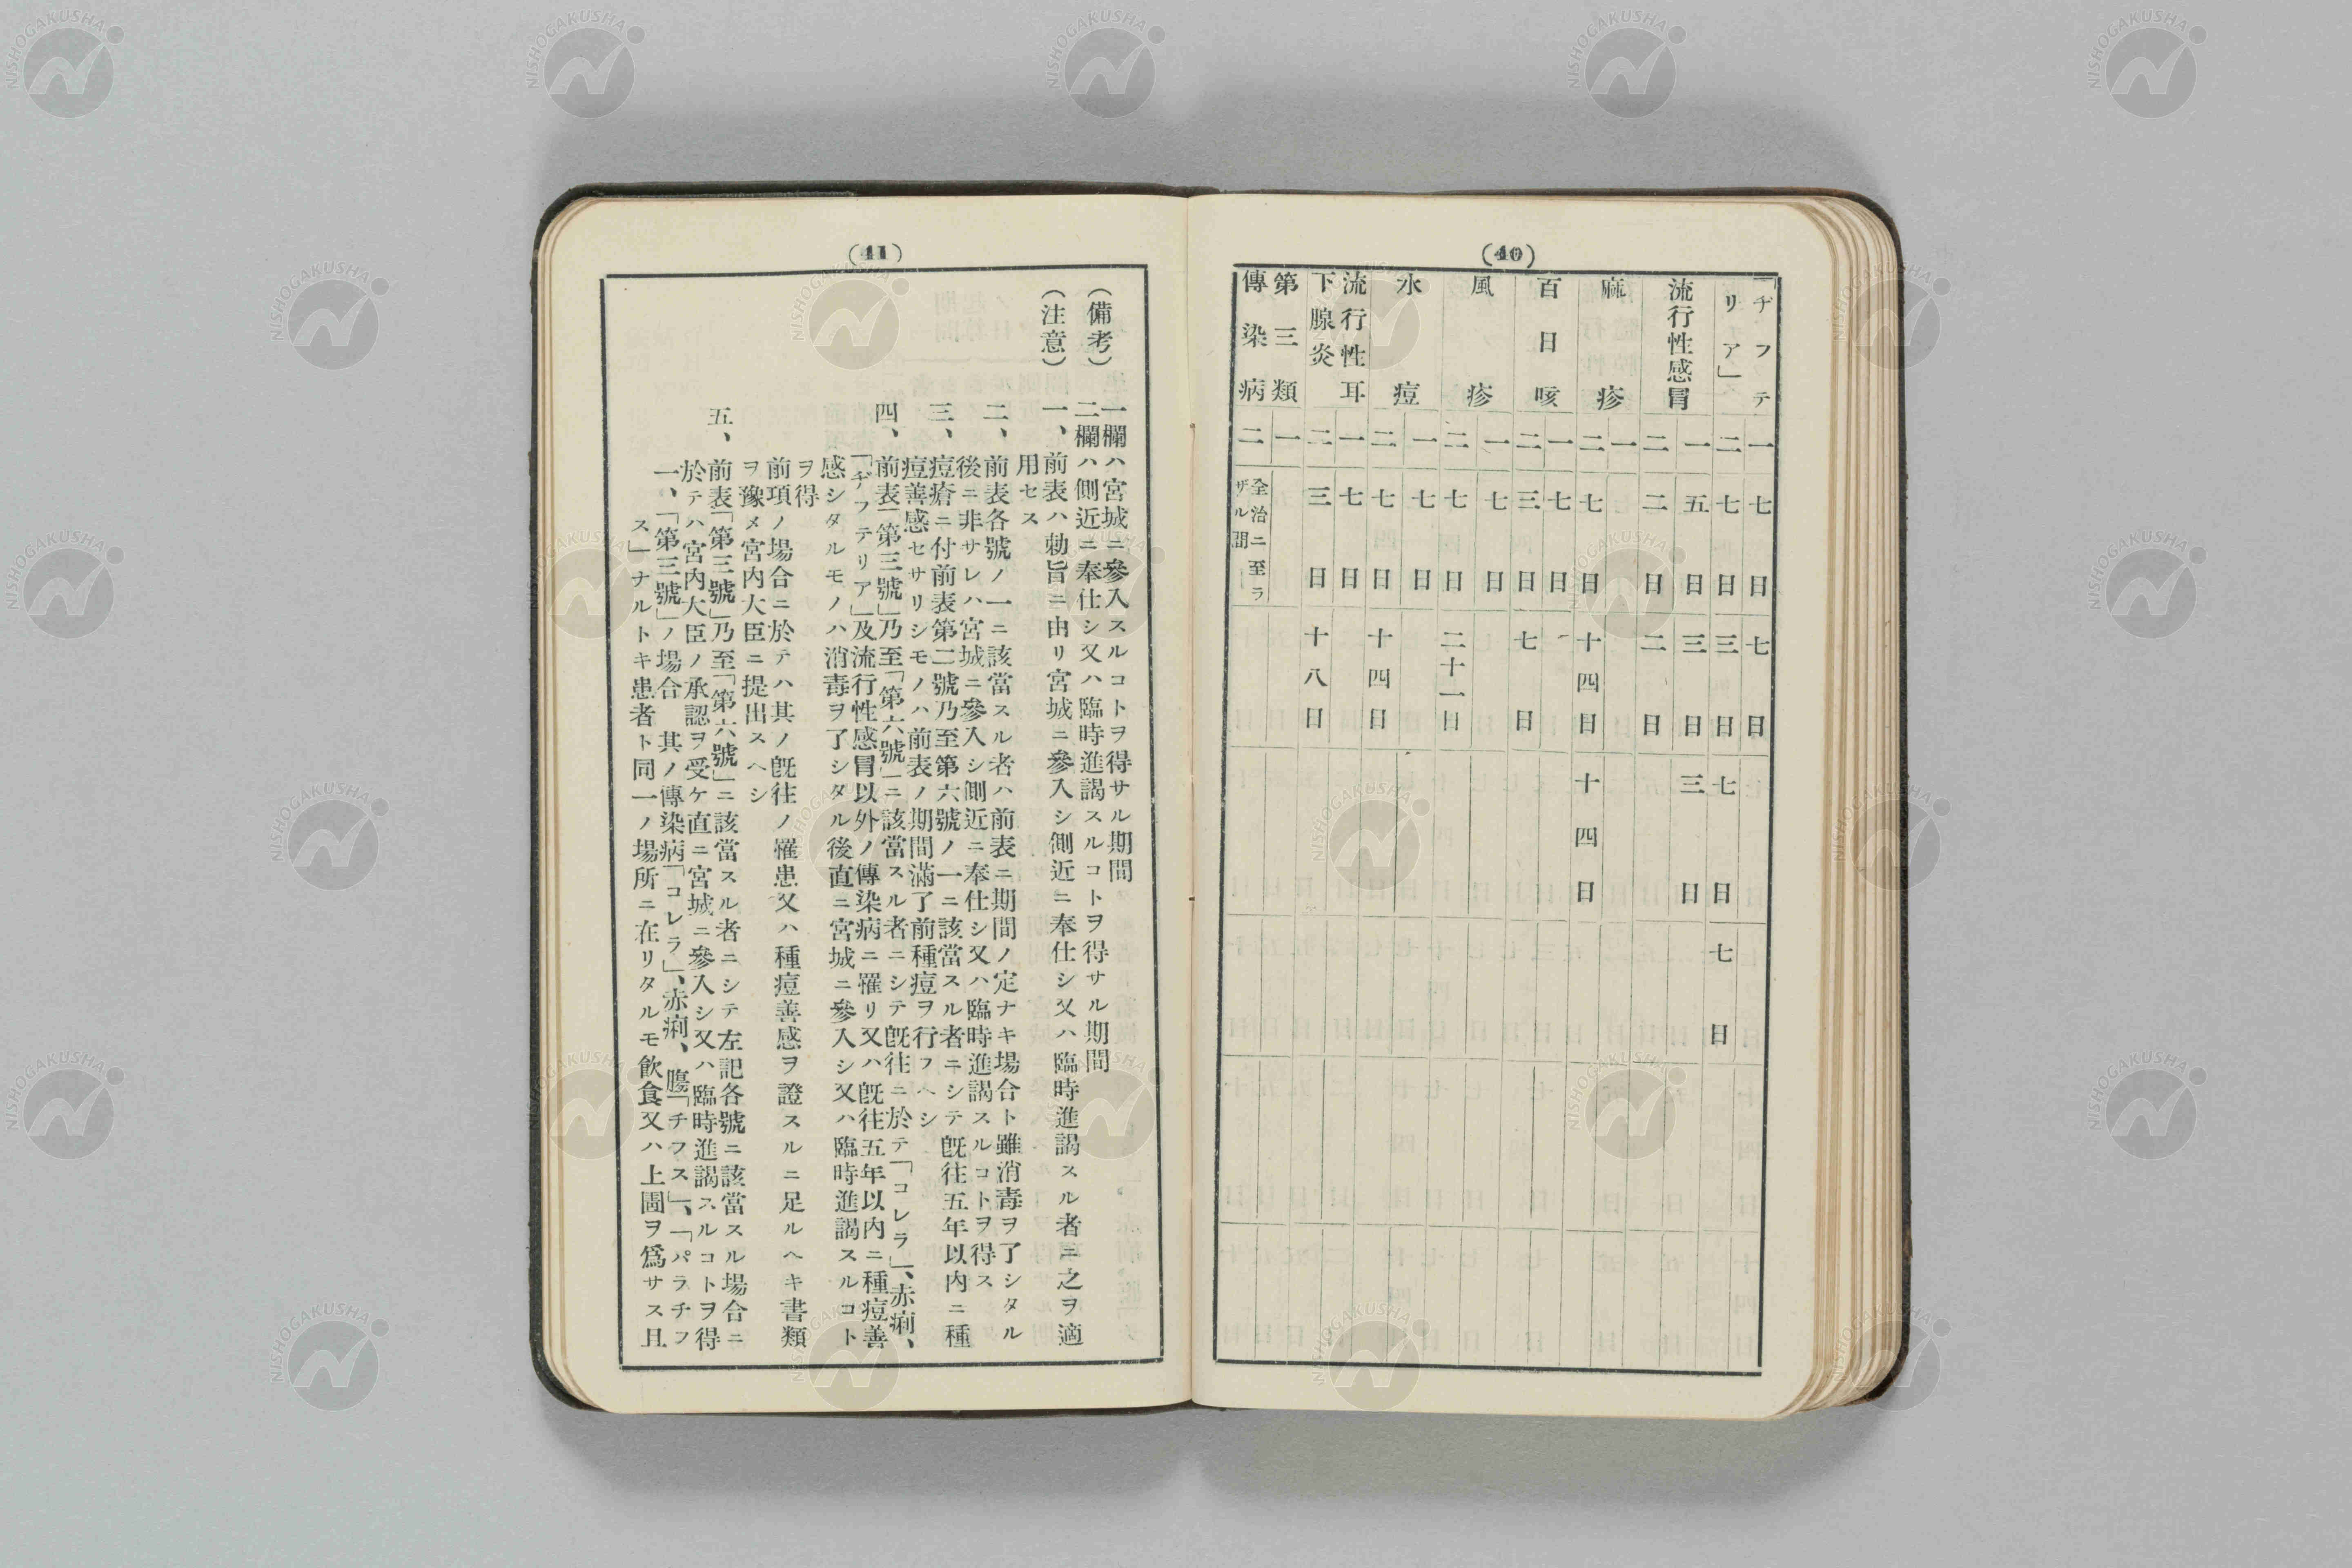 (40)
「ヂフテ 一 七日 七日
リア」 二 七日 三日 七日 七日
流行性感冒 一 五日 三日 三日
二 二日 二日
麻疹 一
二 七日 十四日 十四日
百日咳 一 七日
二 三日 七日
風疹 一 七日
二 七日 二十一日
水痘 一 七日
二 七日 十四日
流行性耳 一 七日
下腺炎 二 三日 十八日
第三類 一
傳染病 二 全治ニ至ラ
ザル間
(41)
(備考) 一欄ハ宮城ニ參入スルコトヲ得サル期間
二欄ハ側近ニ奉仕シ又ハ臨時進謁スルコトヲ得サル期間
(注意) 一、前表ハ勅旨ニ由リ宮城ニ參入シ側近ニ奉仕シ又ハ臨時進謁スル者ニ之ヲ適
用セス
二、前表各號ノ一ニ該當スル者ハ前表ニ期間ノ定ナキ場合ト雖消毒ヲ了シタル
後ニ非サレハ宮城ニ參入シ側近ニ奉仕シ又ハ臨時進謁スルコトヲ得ス
三、痘瘡ニ付前表第二號乃至第六號ノ一ニ該當スル者ニシテ既往五年以内ニ種
痘善感セサリシモノハ前表ノ期間滿了前種痘ヲ行フヘシ
四、前表「第三號」乃至「第六號」ニ該當スル者ニシテ既往ニ於テ「コレラ」、赤痢、
「ヂフテリア」及流行性感冒以外ノ傳染病ニ罹リ又ハ既往五年以内ニ種痘善
感シタルモノハ消毒ヲ了シタル後直ニ宮城ニ參入シ又ハ臨時進謁スルコト
ヲ得
前項ノ場合ニ於テハ其ノ既往ノ罹患又ハ種痘善感ヲ證スルニ足ルヘキ書類
ヲ豫メ宮内大臣ニ提出スヘシ
五、前表「第三號」乃至「第六號」ニ該當スル者ニシテ左記各號ニ該當スル場合ニ
於テハ宮内大臣ノ承認ヲ受ケ直ニ宮城ニ參入シ又ハ臨時進謁スルコトヲ得
一、「第三號」ノ場合 其ノ傳染病「コレラ」、赤痢、膓「チフス」、「パラチフ
ス」ナルトキ患者ト同一ノ場所ニ在リタルモ飲食又ハ上圊ヲ爲サス且
NISHOGAKUSHA